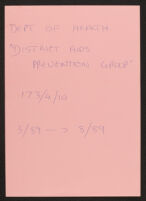 DEPT OF HEALTH
"DISTRICT AIDS
PREVENTION GROUP"
173/4/10
3/89 —> 8/89